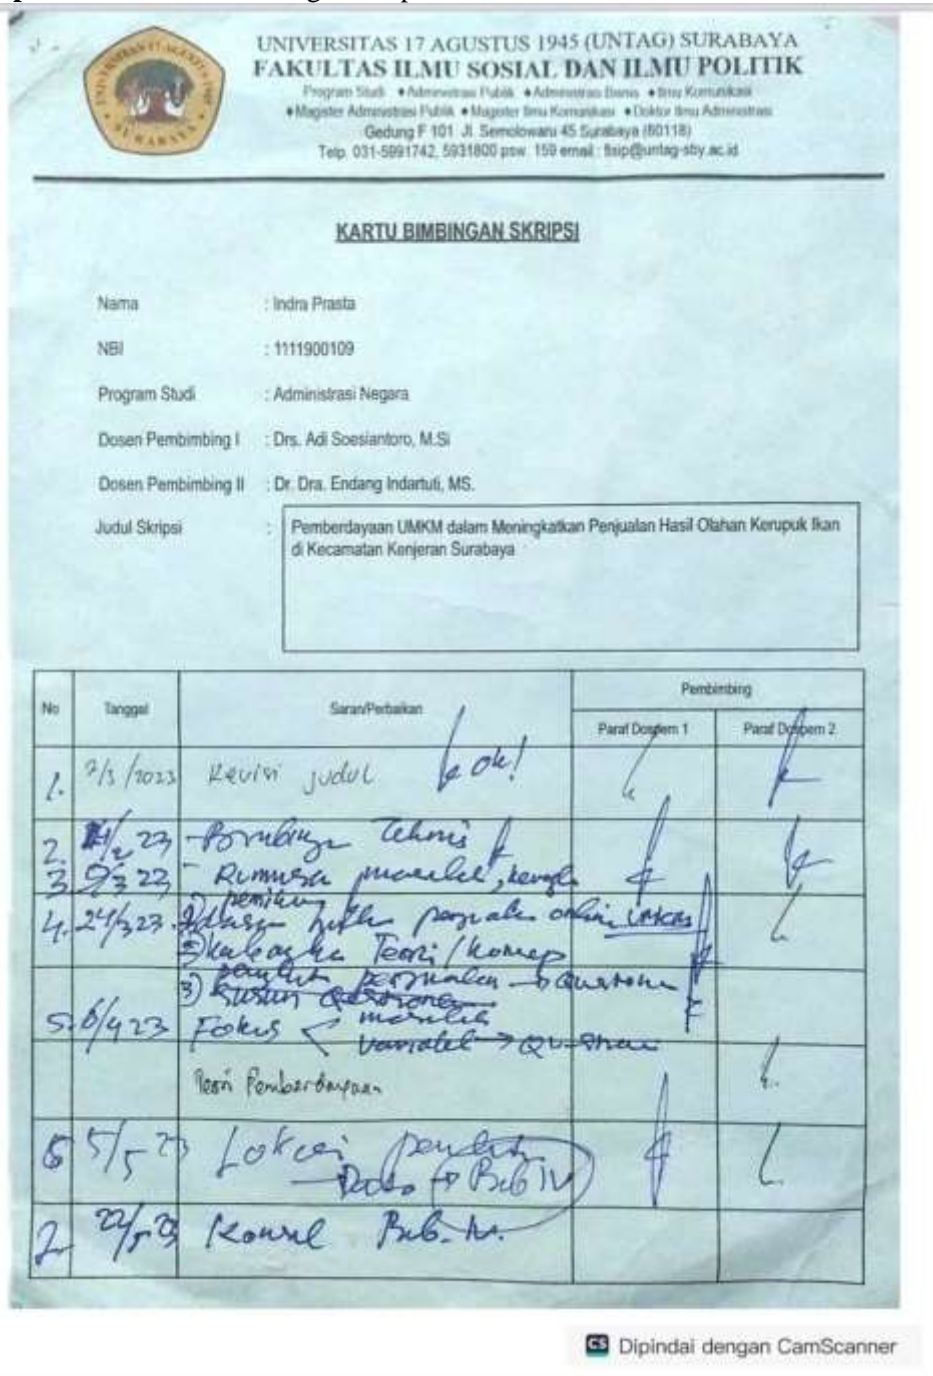 UNIVERSITAS 17 AGUSTUS 1945 (UNTAG) SURABAYA
FAKULTAS ILMU SOSIAL DAN ILMU POLITIK
Program Studi ♦Administrasi Publik ♦Administrasi Bisnis ♦Ilmu Komunikasi
♦Magister Administrasi Publik ♦Magister Ilmu Komunikasi ♦Doktor Ilmu Administrasi
Gedung F 101 Jl. Semolowaru 45 Surabaya (60118)
Telp. 031-5991742, 5931800 psw. 159 email : fisip@untag-sby.ac.id
SURABAYA
KARTU BIMBINGAN SKRIPSI
Nama : Indra Prasta
NBI : 1111900109
Program Studi : Administrasi Negara
Dosen Pembimbing I : Drs. Adi Soesiantoro, M.Si
Dosen Pembimbing II : Dr. Dra. Endang Indartuti, MS.
Judul Skripsi : Pemberdayaan UMKM dalam Meningkatkan Penjualan Hasil Olahan Kerupuk Ikan
di Kecamatan Kenjeran Surabaya
No Tanggal Saran/Perbaikan Pembimbing
Paraf Dospem 1 Paraf Dospem 2
1. 7/3/2023 Revisi judul ok!
2. 23
3. 9/3 23 - Rumusan masalah,
4. 24/3 23 online
Teori / Konsep
3) Susun
5. 6/4 23 Fokus masalah
variabel →
Teori Pemberdayaan
6 5/5 23 Lokasi
Data Bab IV
7 22/5 23 Konsul Bab IV.
CS Dipindai dengan CamScanner